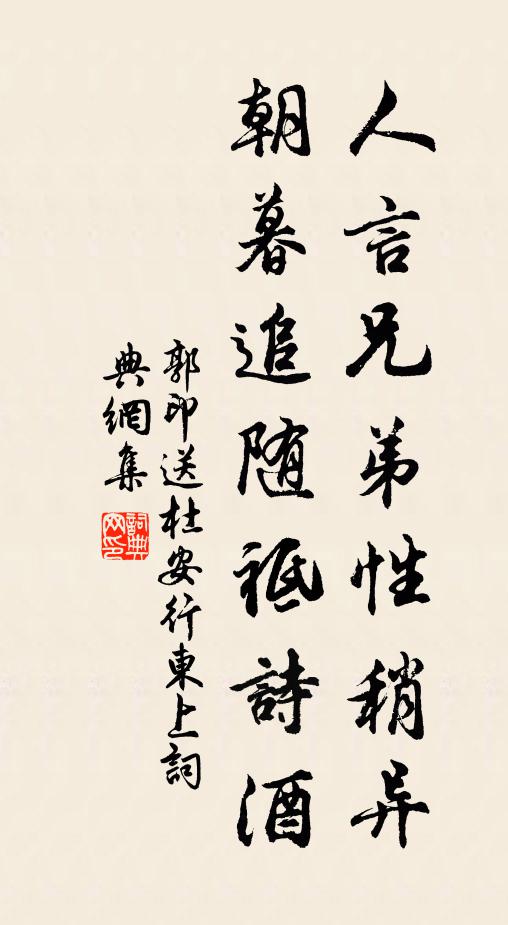 人言兄弟性稍异
朝暮追随祗詩酒
郭印送杜安行東上詞
典網集
詞典網印